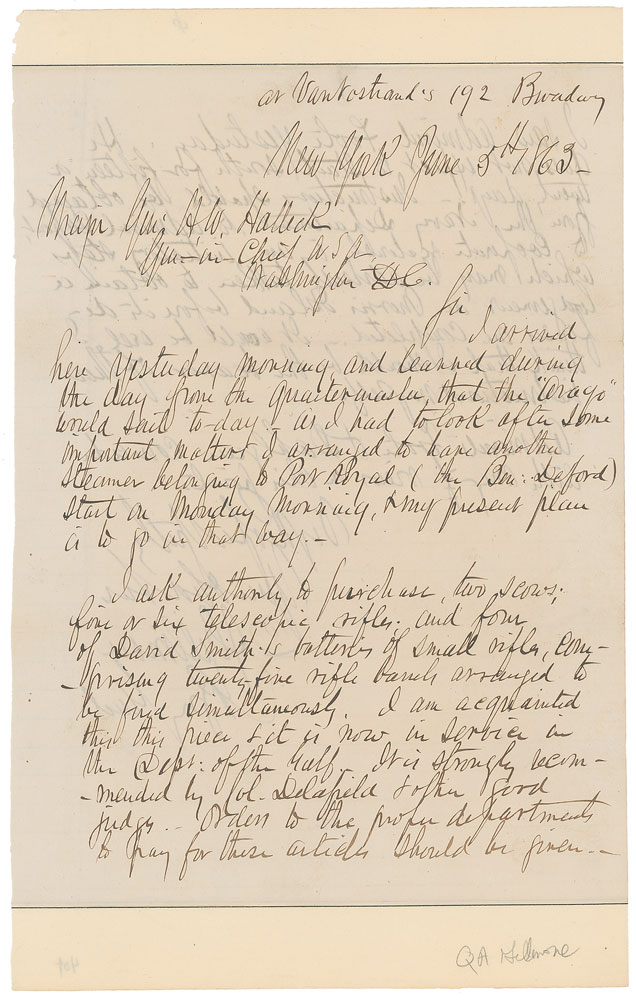 at VanNostrand's 192 Broadway
New York June 5th 1863 -
Major Gen; H. W. Halleck
Gen-in-Chief U.S.A.
Washington D.C.
Sir
I arrived
here yesterday morning and learned during
the day from the quartermaster, that the "Arago"
would sail to-day - As I had to look after some
important matters I arranged to have another
steamer belonging to Port Royal (the Ben: Deford)
start on Monday morning, & my present plan
is to go in that way. -
I ask authority to purchase, two scows;
five or six telescopic rifles; and four
of David Smith's batteries of small rifles, com-
-prising twenty-five rifle barrels arranged to
be fired simultaneously. I am acquainted
this piece & it is now in service in
the Dept: of the Gulf. - It is strongly recom-
-mended by Col. Delafield & other good
judges. - Orders to the proper departments
to pay for these articles should be given. -
Q A Gillmore